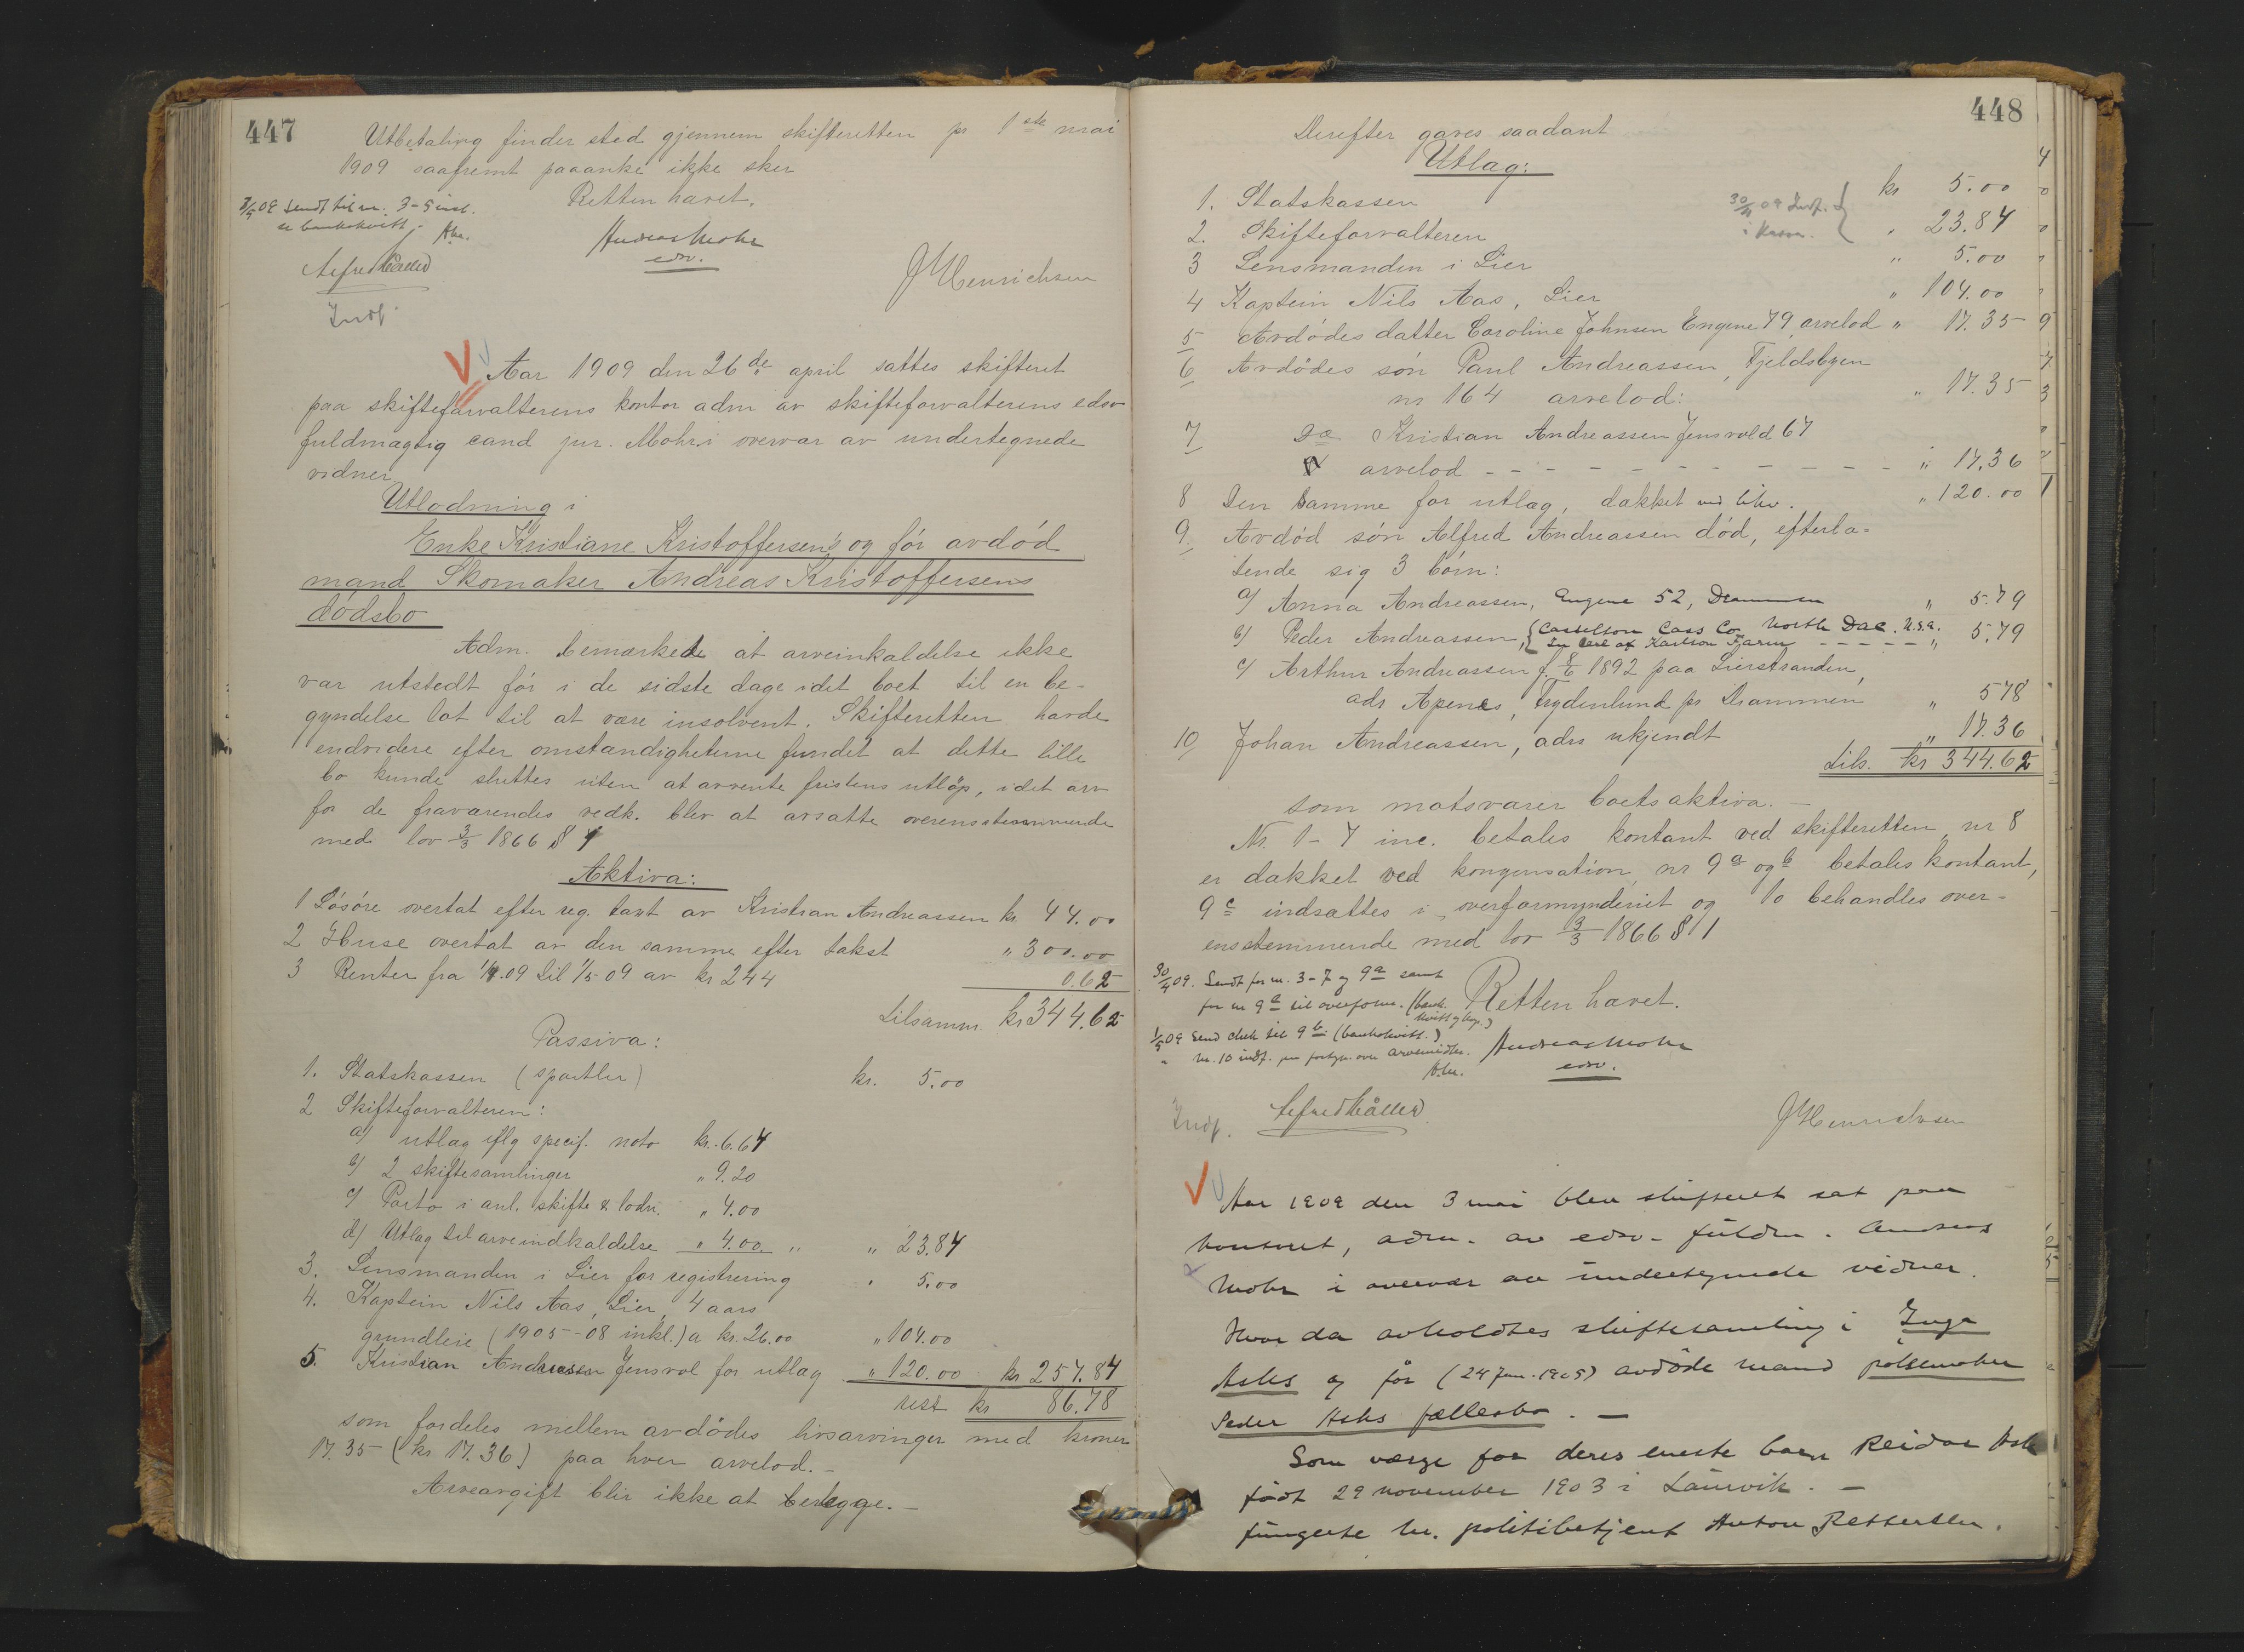 447
Utbetaling finder sted gjennem skifteretten pr 1ste mai
1909 saafremt paaanke ikke sker
Retten hævet.
Andreas Mohr
edsv.
J Henrichsen
Indf.
Aar 1909 den 26de april sattes skifteret
paa skifteforvalterens kontor adm av skifteforvalterens edsv
fuldmægtig cand jur. Mohr i overvær av undertegnede
vidner
Utlodning i
Enke Kristiane Kristoffersen's og før avdød
mand Skomaker Andreas Kristoffersens
dødsbo
Adm. bemærkede at arveinkaldelse ikke
var utstedt før i de sidste dage idet boet til en be-
gyndelse lot til at være insolvent. Skifteretten havde
endvidere efter omstændigheterne fundet at dette lille
bo kunde sluttes uten at avvente fristens utløp, idet arv
for de fraværendes vedk. blev at avsætte overensstemmende
med lov 3/3 1866 §
Aktiva:
1 Løsøre overtat efter reg. takst av Kristian Andreassen kr. 44.00
2 Huse overtat av den samme efter takst " 300.00
3 Renter fra 1/4.09 til 1/5 09 av kr 244 0.62
tilsamm. kr 344.62
Passiva:
1. Statskassen (sportler) kr. 5.00
2 Skifteforvalteren:
a) utlag iflg specif. nota kr. 6.64
b) 2 skiftesamlinger " 9.20
c) Porto i anl. skifte & lodn. " 4.00
d) Utlag til arveindkaldelse " 4.00 " " 23.84
3. Lensmanden i Lier for registrering " 5.00
4. Kaptein Nils Aas, Lier, 4 aars
grundleie (1905-08 inkl.) a kr. 26.00 " 104.00
5. Kristian Andreassen Jensvol for utlag " 120.00 kr 257.84
rest kr 86.78
som fordeles mellem avdødes livsarvinger med kroner
17.35 (kr 17.36) paa hver arvelod.-
Arveavgift blir ikke at beregge.-
448
Derefter gaves saadant
Utlag:
1. Statskassen kr 5.00
2. Skifteforvalteren " 23.84
3 Lensmanden i Lier " 5.00
4 Kaptein Nils Aas, Lier " 104.00
5 Avdødes datter Caroline Johnsen Engene 79, arvelod " 17.35
6 Avdødes søn Paul Andreassen, Fjeldsbyen
nr 164 arvelod: " 17.35
7 do Kristian Andreassen Jensvold 67
arvelod - - - - - - - - - - " 17.36
8 Den samme for utlag, dækket ved likv. " 120.00
9. Avdød søn Alfred Andreassen død, efterla-
tende sig 3 børn:
a) Anna Andreassen, Engene 52, Drammen " 5.79
b) Peder Andreassen, Casselton Cass Co North Dac. U.S.A.
Karlson Farm - - - - - " 5.79
c) Arthur Andreassen f. 8/6 1892 paa Lierstranden,
adr Apenes, Frydenlund pr Drammen " 5 78
10) Johan Andreassen, adrs ukjendt " 17.36
Tils. kr 344.62
som motsvarer boets aktiva.-
Nr. 1-7 inc. betales kontant ved skifteretten, nr 8
er dækket ved kompensation, nr 9a og b betales kontant,
9c indsættes i overformynderiet og 10 behandles over-
ensstemmende med lov 13/3 1866 § 11
30/4 09. Sendt for nr. 3-7 og 9a samt
Retten hævet.
1/5 09 Send chek til 9b (bankkvitt.)
Andreas Mohr
edsv.
J Henrichsen
Indf.
Aar 1909 den 3 mai blev skifteret sat paa
kontoret, adm. av edsv. fuldm. Andreas
Mohr i overvær av undertegnede vidner.
Hvor da avholdtes skiftesamling i Inga
Asks og før (24 jan. 1909) avdøde mand pølsemaker
Peder Asks fællesbo. -
Som værge for deres eneste barn Reidar Ask
født 29 november 1903 i Laurvik. -
fungerte hr. politibetjent Anton Pettersen.